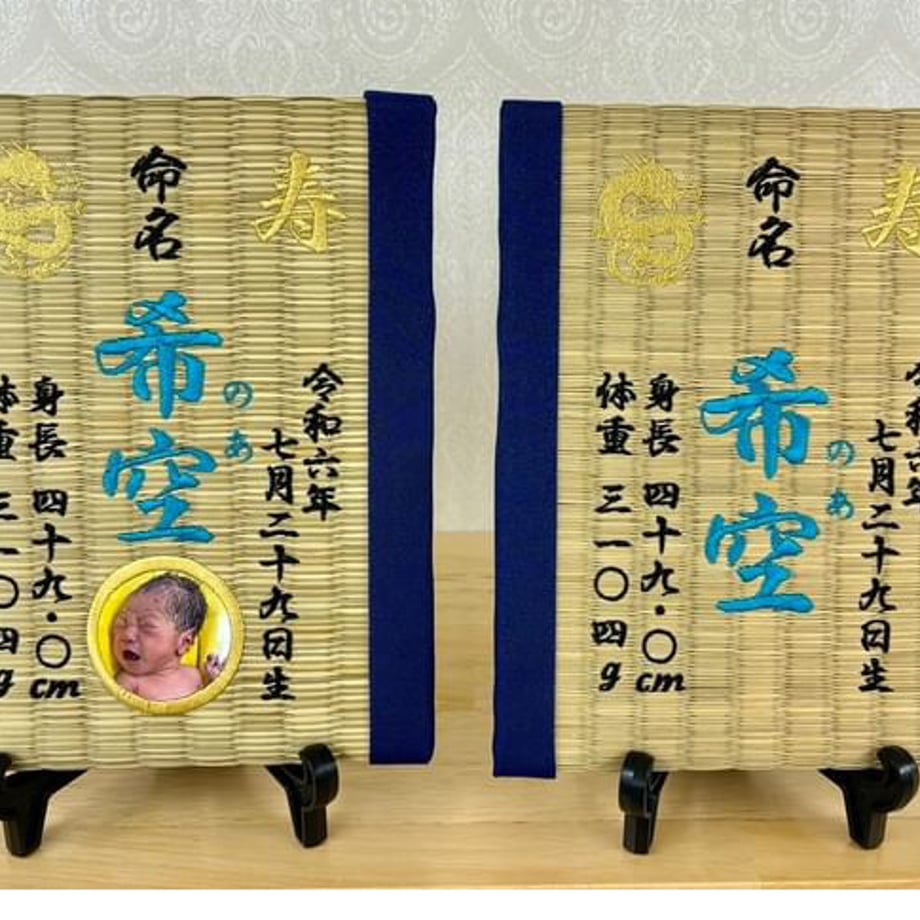 寿
命名
希空
のあ
令和六年
七月二十九日生
身長 四十九・〇cm
体重 三一〇四g
寿
命名
希空
のあ
令和六年
七月二十九日生
身長 四十九・〇cm
体重 三一〇四g